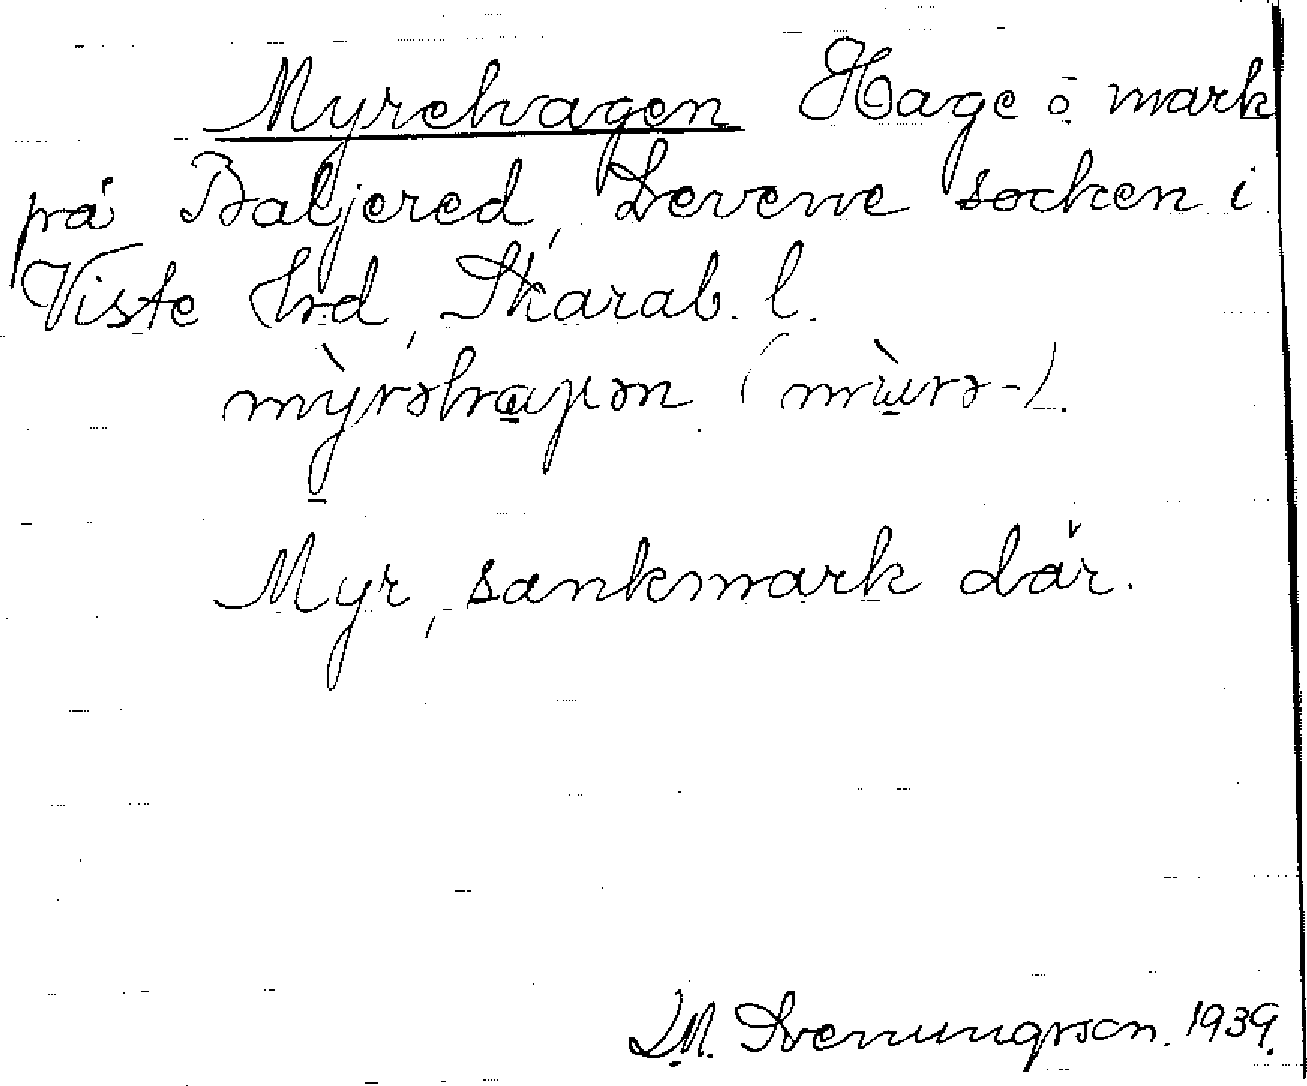 Myrehagen Hage o. mark
på Baljered, Levene socken i
Viste hrd, Skarab. l.
mỳrəhaγən (mùrə-).
Myr, sankmark där.
D.M. Svenungsson. 1939.